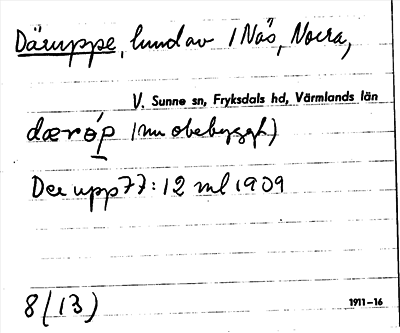 Däruppe, lund av 1 Näs, Norra,
V. Sunne sn, Fryksdals hd, Värmlands län
dærɵ́p (nu obebyggt)
Der upp 77: 12 ml 1909
8 (13)
1911–16